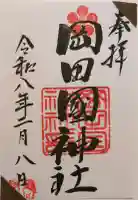 奉拝
岡田國神社
令和八年二月八日